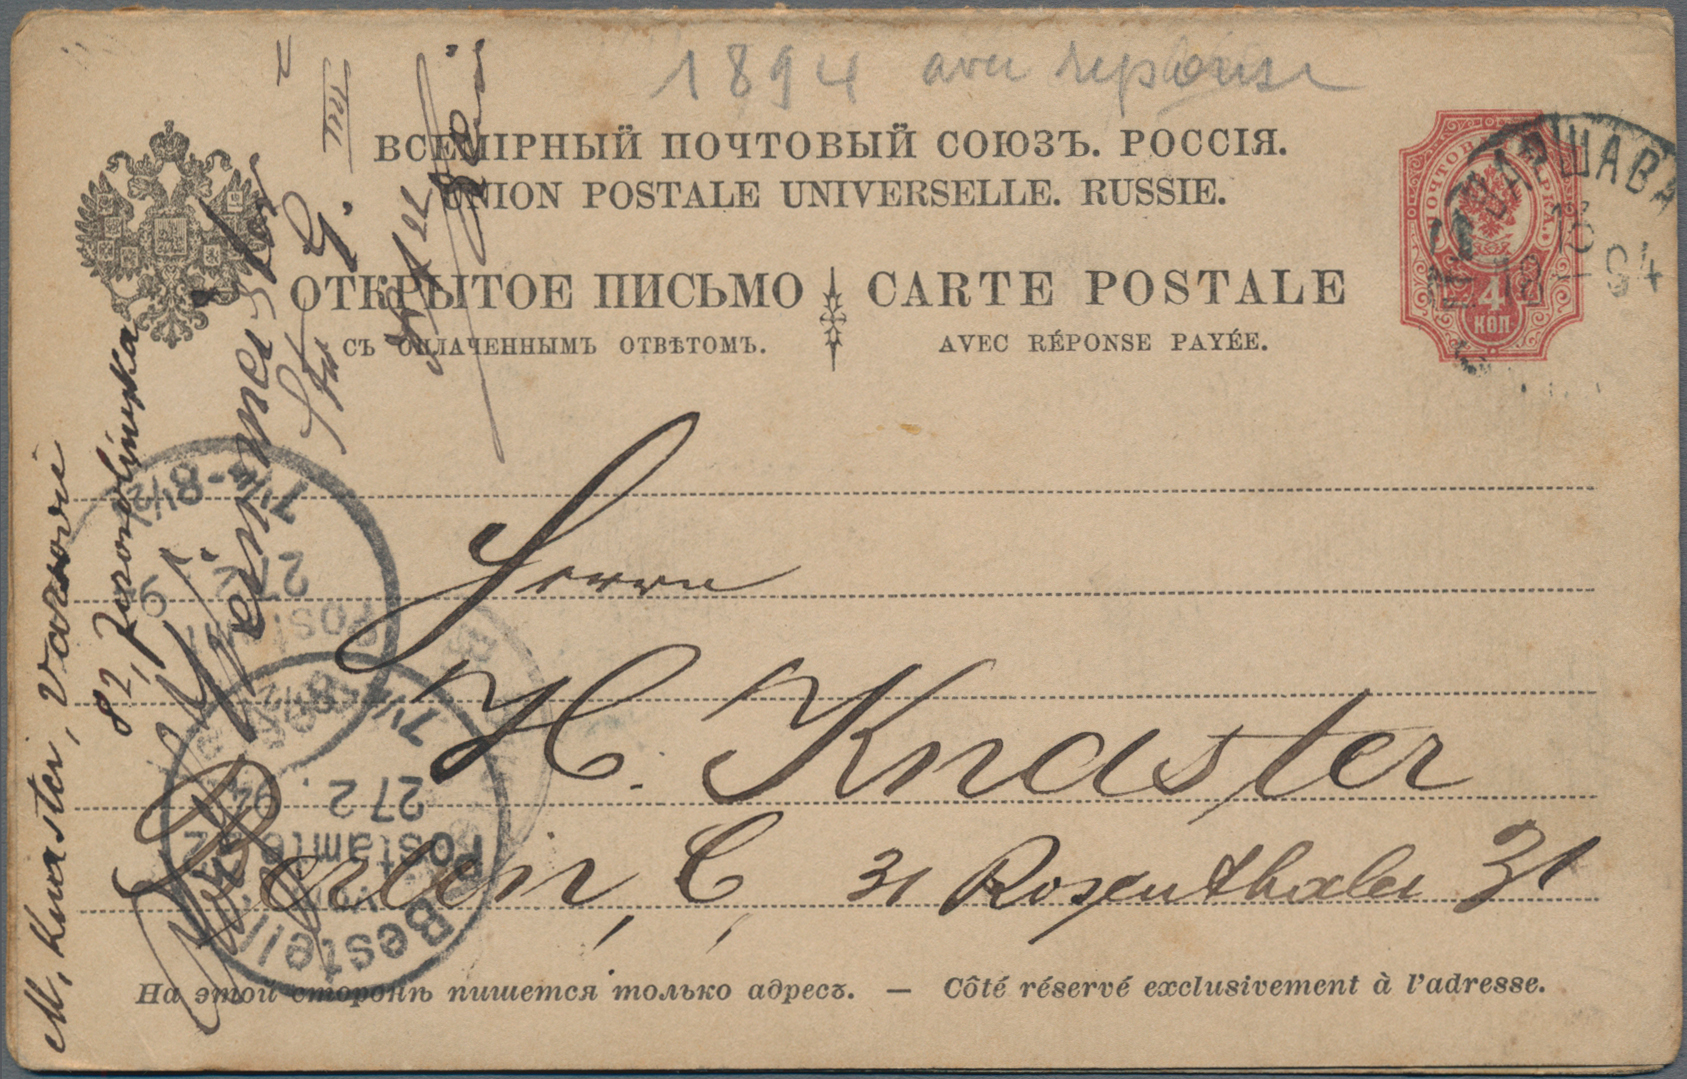 1894 avec réponse
ВСЕМІРНЫЙ ПОЧТОВЫЙ СОЮЗЪ. РОССІЯ.
UNION POSTALE UNIVERSELLE. RUSSIE.
ОТКРЫТОЕ ПИСЬМО CARTE POSTALE
СЪ ОПЛАЧЕННЫМЪ ОТВѢТОМЪ. AVEC RÉPONSE PAYÉE.
ПОЧТОВ МАРКА.
4
КОП
ВАРШАВА
94
Herrn
H. Knaster
Berlin, C, 31 Rosenthaler 31
На этой сторонѣ пишется только адресъ. — Côté réservé exclusivement à l'adresse.
M. Knaster, Varsovie
82,
7¼-8½
27 2
Bestellt
Postamte
27 2. 94
7¼-8½